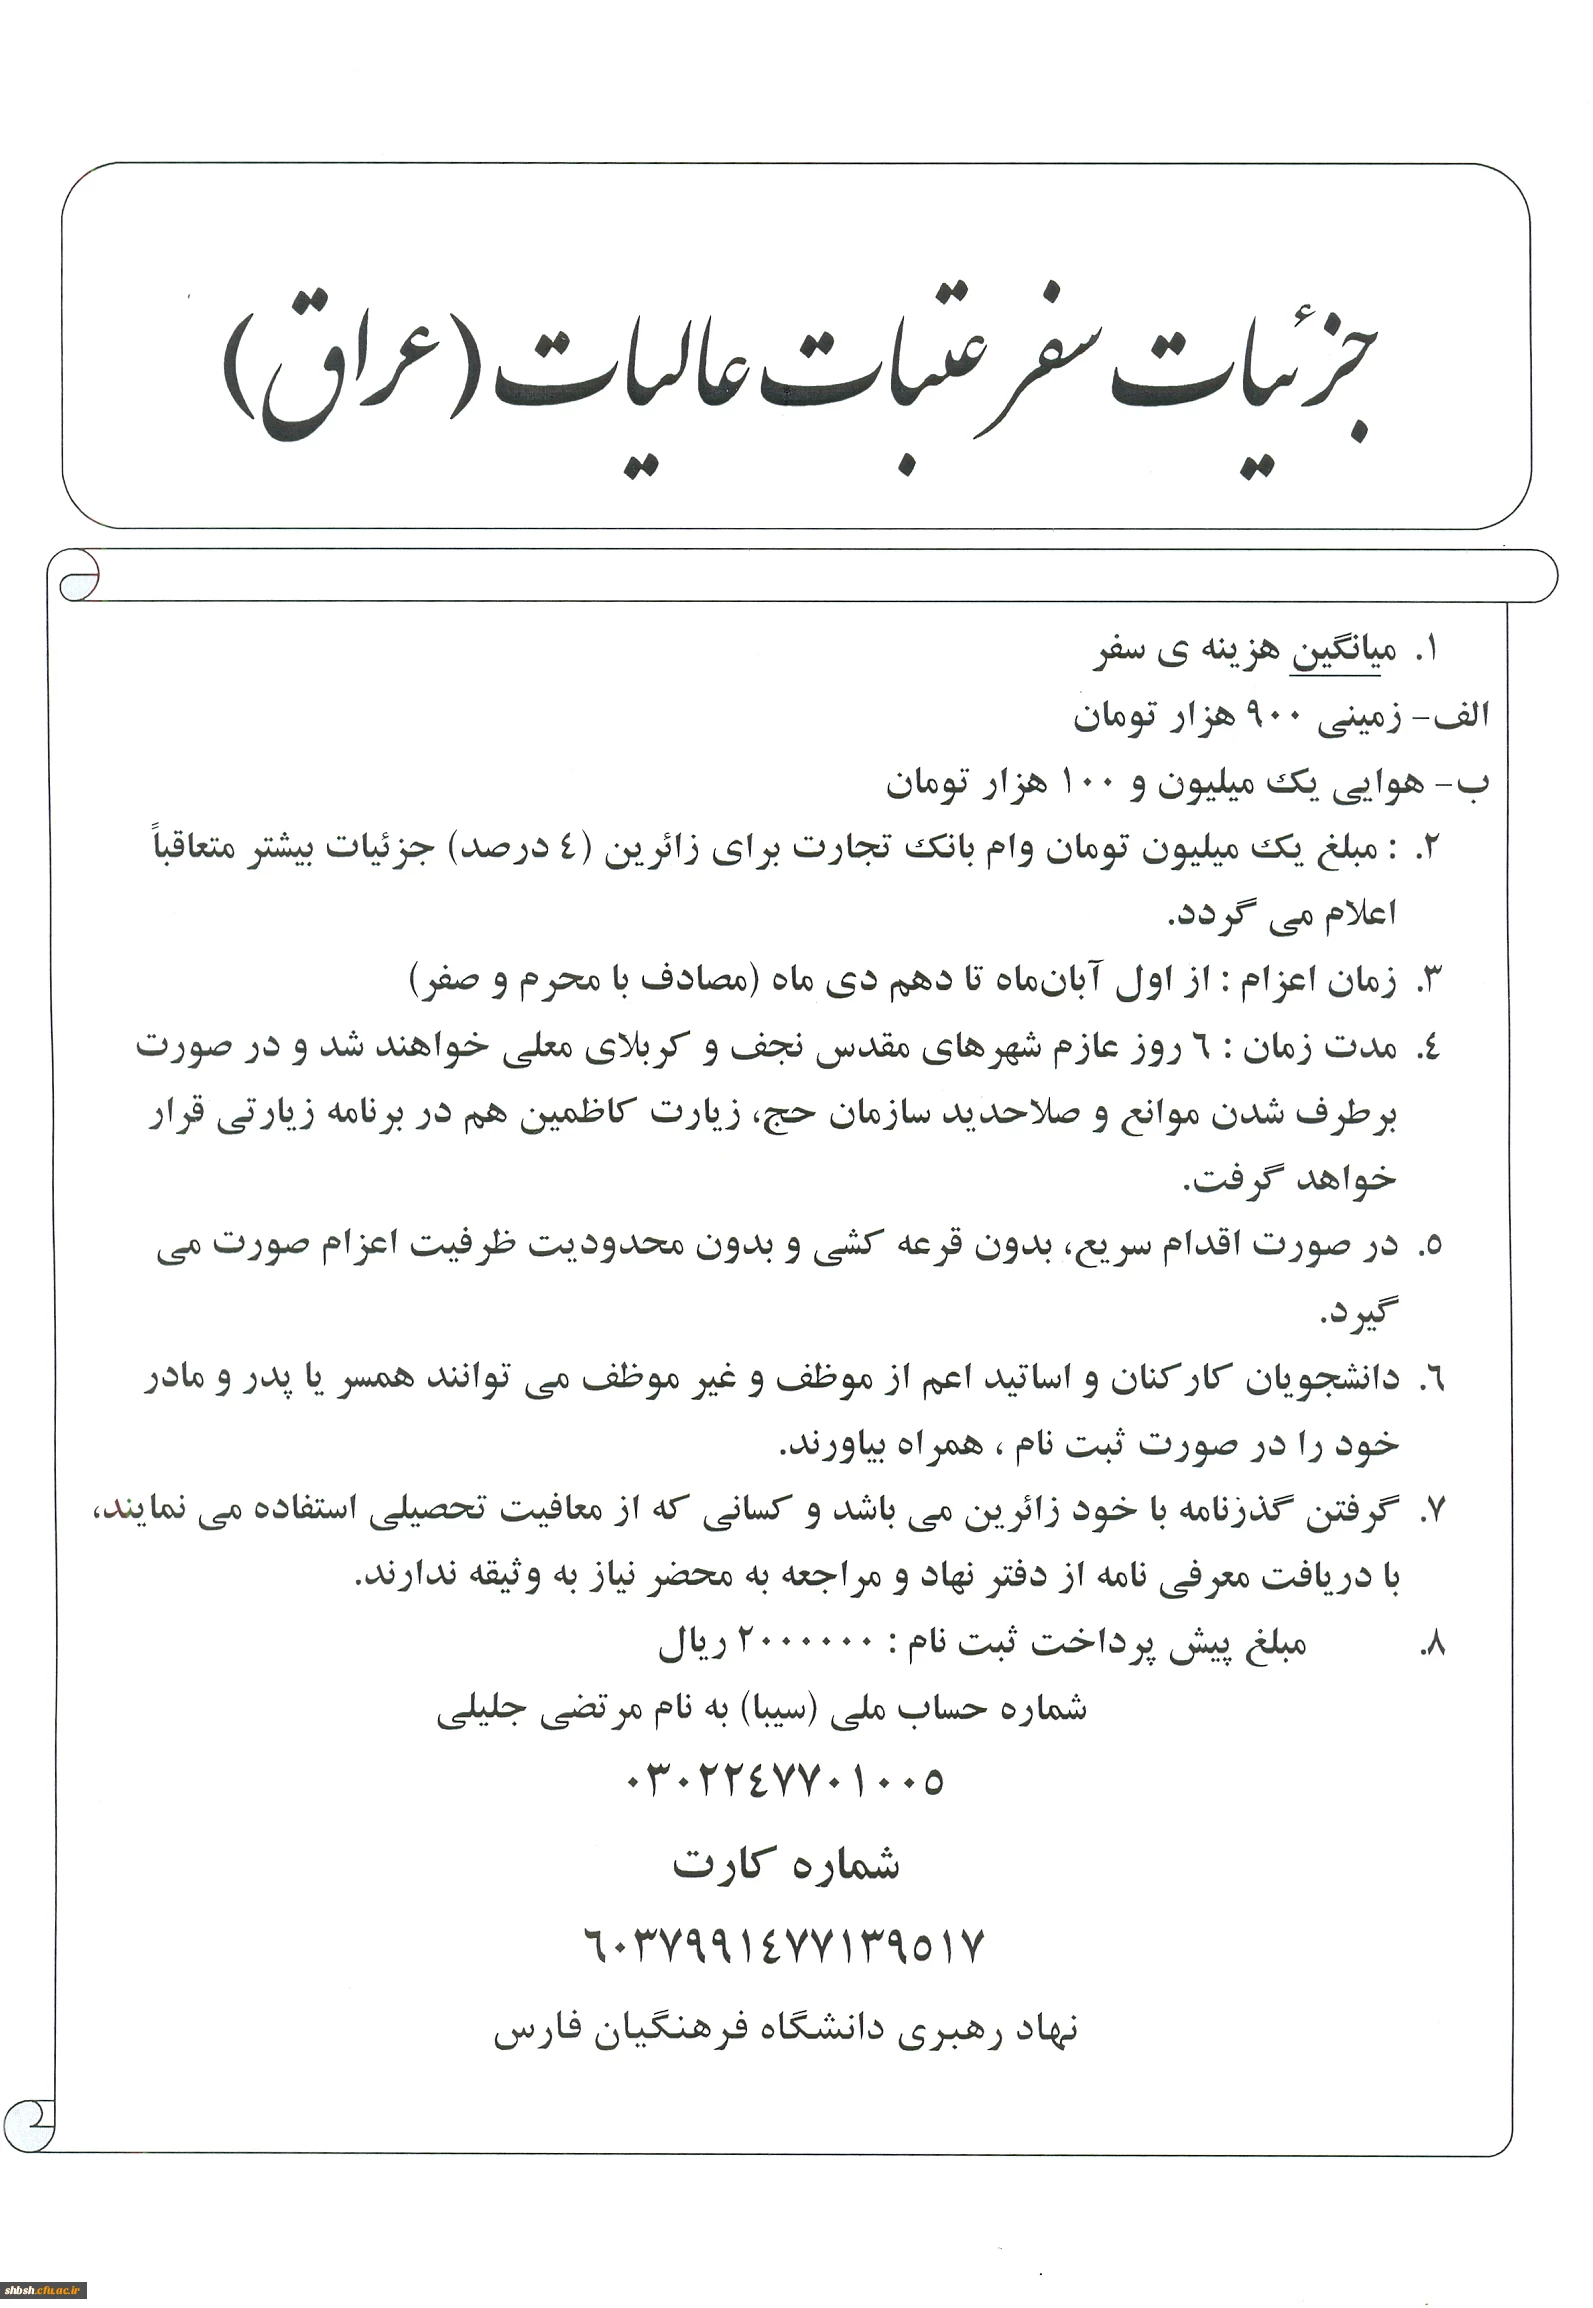 جزئیات سفر عتبات عالیات (عراق)
۱. میانگین هزینه ی سفر
الف- زمینی ۹۰۰ هزار تومان
ب- هوایی یک میلیون و ۱۰۰ هزار تومان
۲. : مبلغ یک میلیون تومان وام بانک تجارت برای زائرین (٤ درصد) جزئیات بیشتر متعاقباً
اعلام می گردد.
۳. زمان اعزام : از اول آبان‌ماه تا دهم دی ماه (مصادف با محرم و صفر)
٤. مدت زمان : ٦ روز عازم شهرهای مقدس نجف و کربلای معلی خواهند شد و در صورت
برطرف شدن موانع و صلاحدید سازمان حج، زیارت کاظمین هم در برنامه زیارتی قرار
خواهد گرفت.
٥. در صورت اقدام سریع، بدون قرعه کشی و بدون محدودیت ظرفیت اعزام صورت می
گیرد.
٦. دانشجویان کارکنان و اساتید اعم از موظف و غیر موظف می توانند همسر یا پدر و مادر
خود را در صورت ثبت نام ، همراه بیاورند.
۷. گرفتن گذرنامه با خود زائرین می باشد و کسانی که از معافیت تحصیلی استفاده می نمایند،
با دریافت معرفی نامه از دفتر نهاد و مراجعه به محضر نیاز به وثیقه ندارند.
۸. مبلغ پیش پرداخت ثبت نام : ۲۰۰۰۰۰۰ ریال
شماره حساب ملی (سیبا) به نام مرتضی جلیلی
۰۳۰۲۲٤۷۷۰۱۰۰٥
شماره کارت
٦۰۳۷۹۹۱٤۷۷۱۳۹٥۱۷
نهاد رهبری دانشگاه فرهنگیان فارس
shbsh.cfu.ac.ir